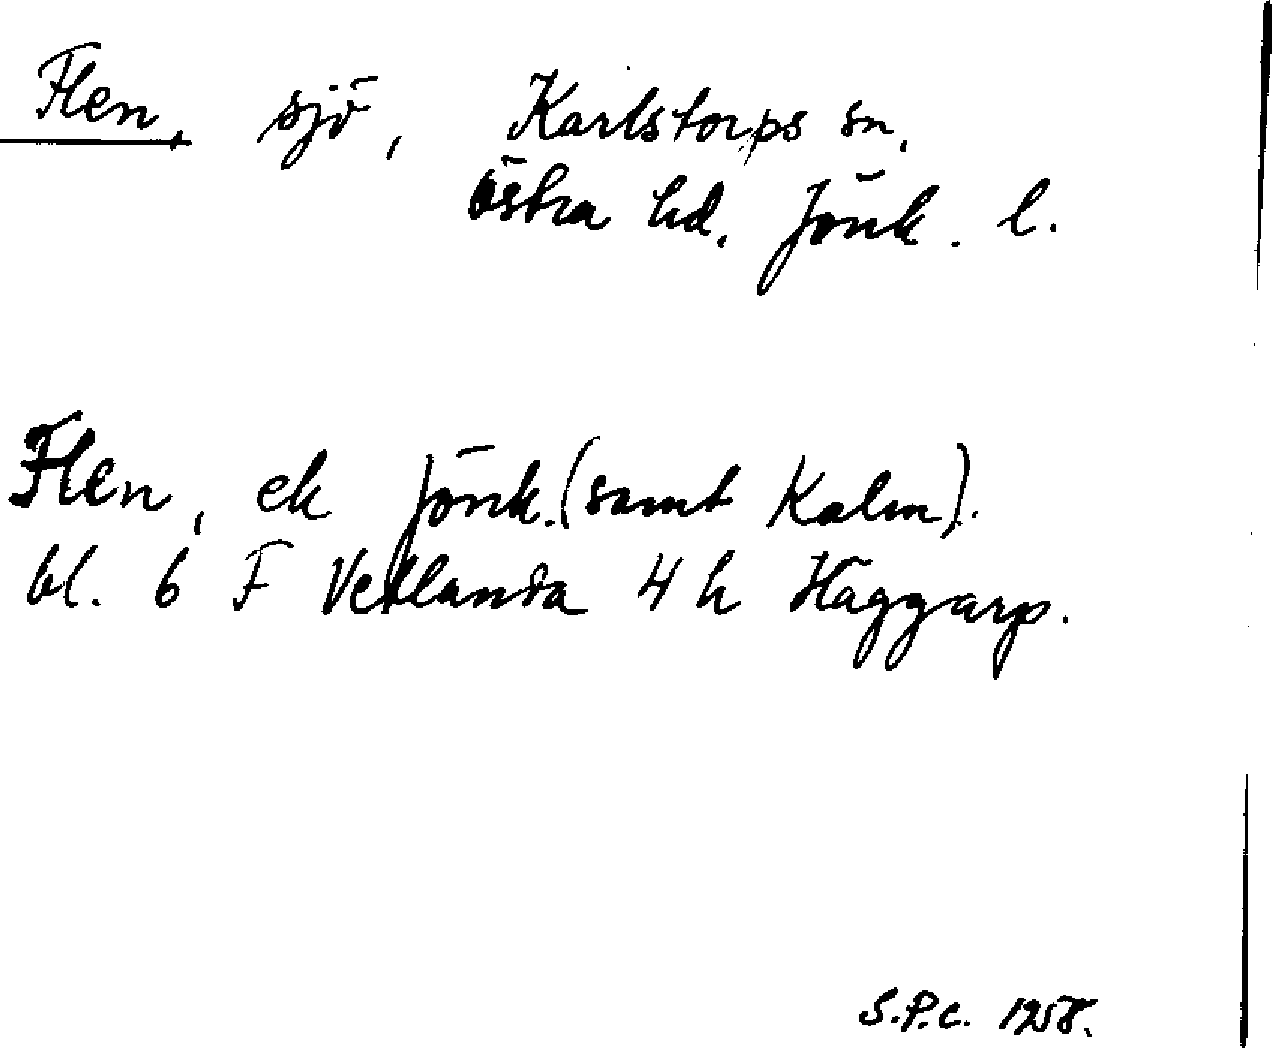 Flen, sjö, Karlstorps sn,
östra hd, Jönk. l.
Flen, ek Jönk. (samt Kalm).
bl. 6 F Vetlanda 4 h Häggarp.
S.P.C. 1958.